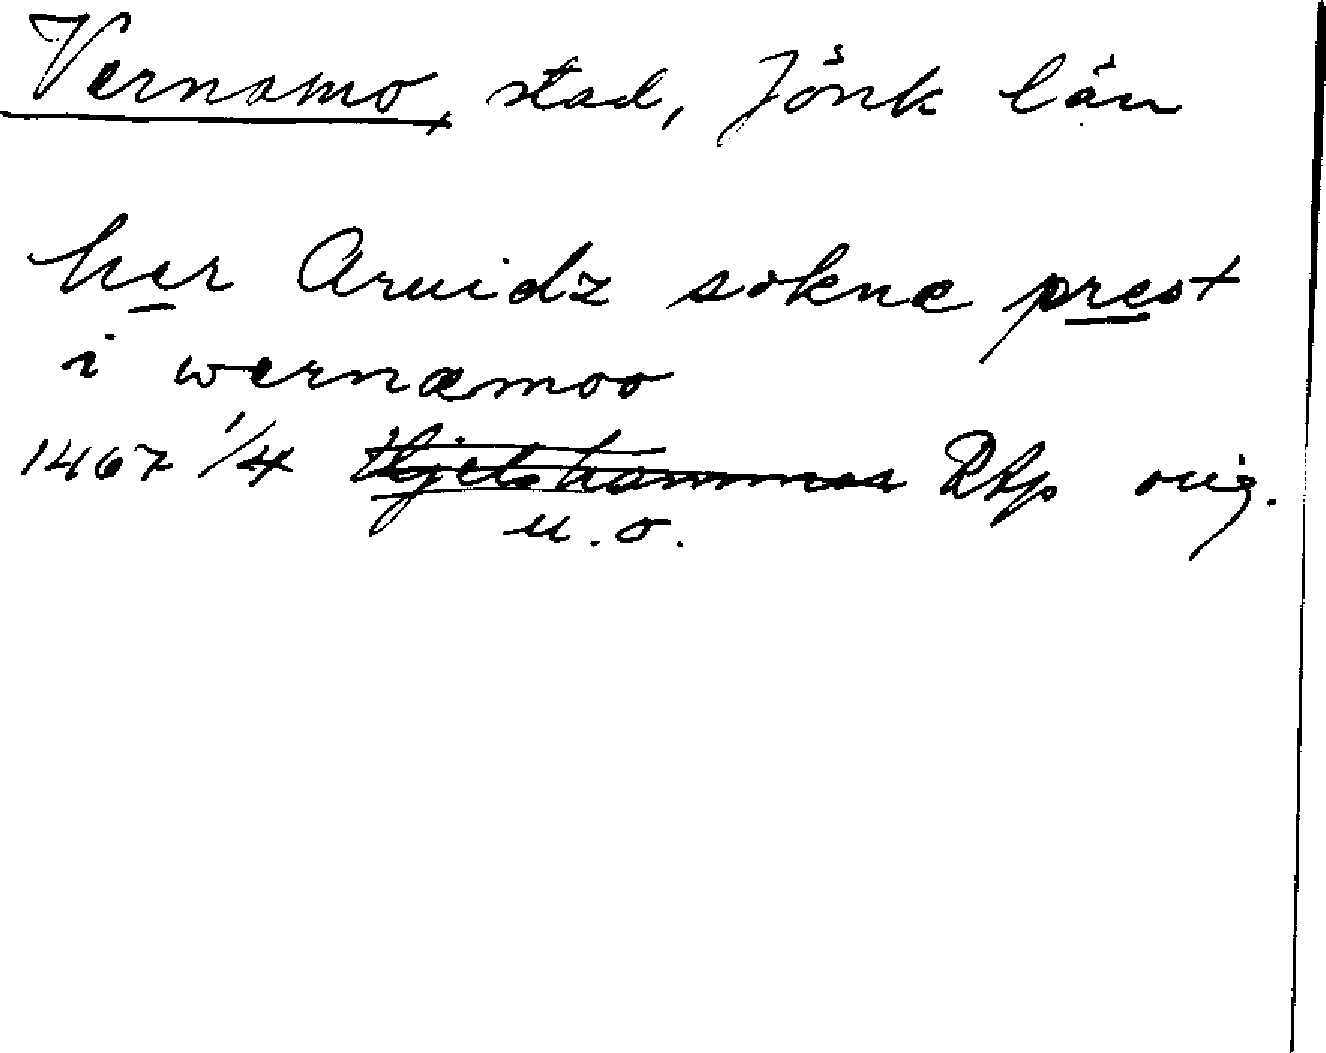 Vernamo, stad, Jönk län
her Aruidz sokne prest
i wernæmoo
1467 1/4 Hjelshammar RAp orig.
u.o.